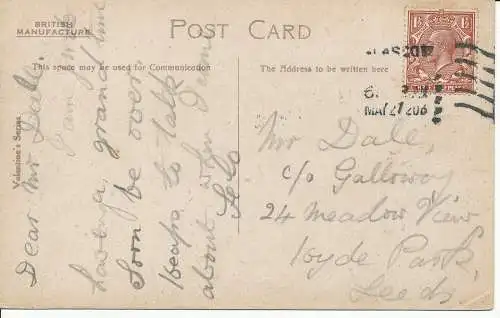 BRITISH
MANUFACTURE
POST CARD
This space may be used for Communication
The Address to be written here
Valentine's Series
Dear Mr Dale.
I am
having a grand time
Soon be over
heaps to talk
about when I
Mr Dale,
c/o Galloway
24 Meadow View
Hyde Park,
Leeds.
MA 21 206